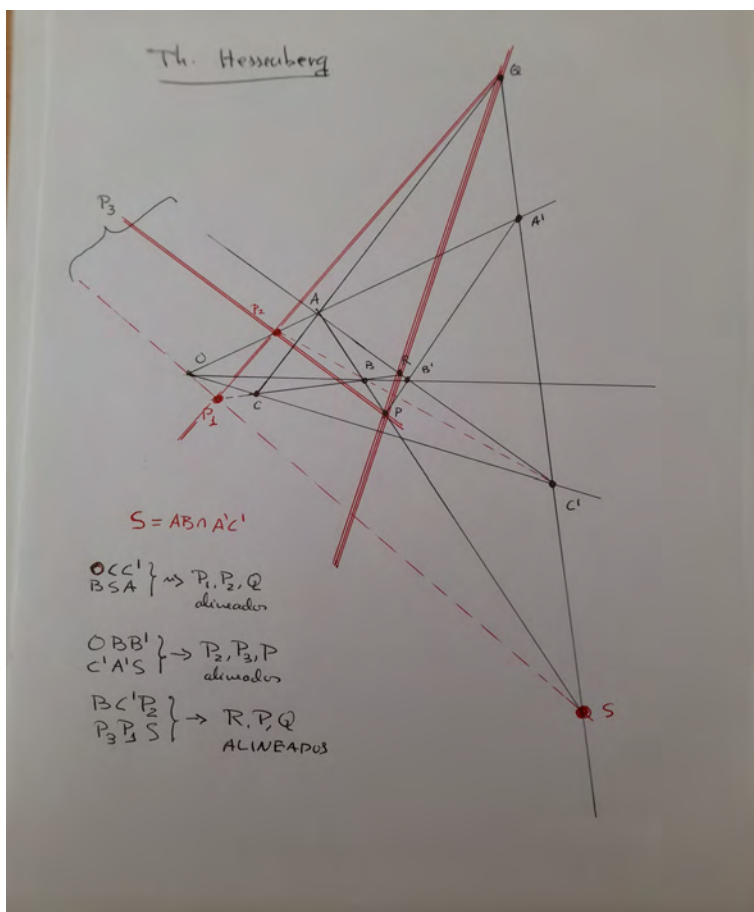 Th. Hessenberg
Q
P3
A'
A
P2
O
B
R
B'
C
P1
P
C'
S = AB∩A'C'
OCC'
BSA } ⇝ P1, P2, Q
alineados
OBB'
C'A'S } → P2, P3, P
alineados
S
BC'P2
P3P1S } → R, P, Q
ALINEADOS